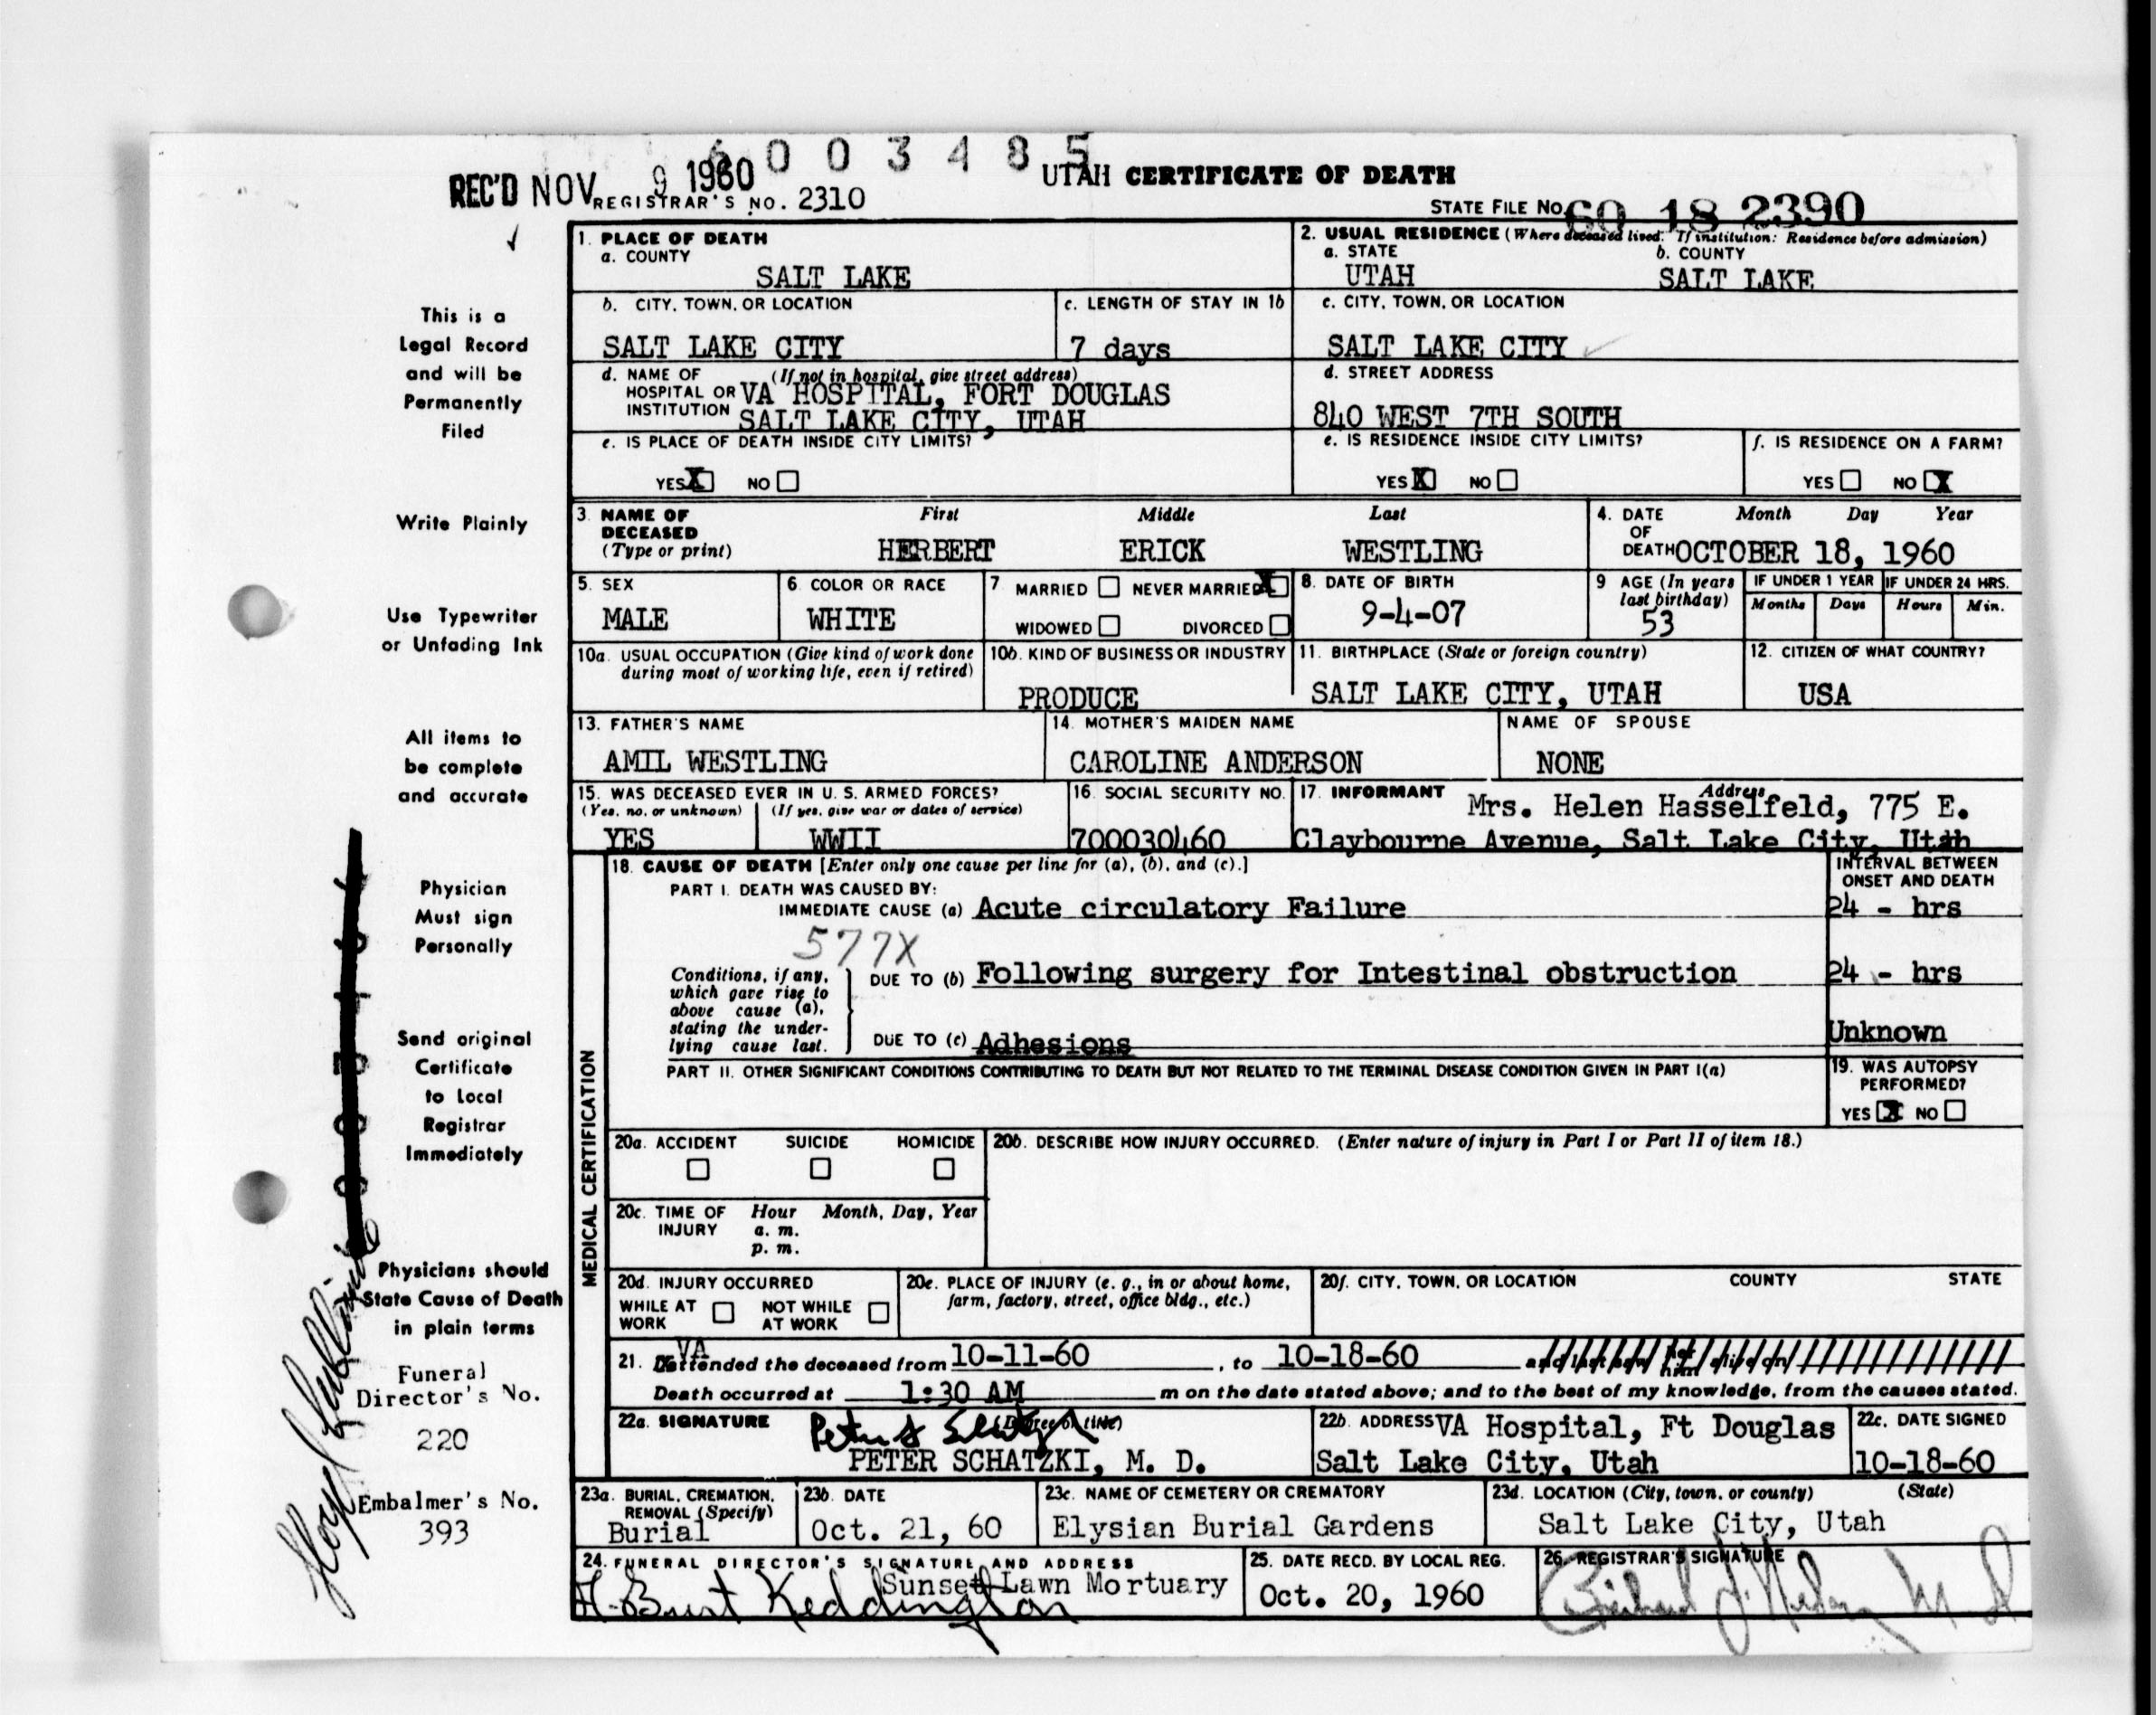 6003485
REC'D NOV 9 1960
REGISTRAR'S NO. 2310
UTAH CERTIFICATE OF DEATH
STATE FILE NO. 60 18 2390
This is a
Legal Record
and will be
Permanently
Filed
Write Plainly
Use Typewriter
or Unfading Ink
All items to
be complete
and accurate
Physician
Must sign
Personally
Send original
Certificate
to Local
Registrar
Immediately
Physicians should
State Cause of Death
in plain terms
Funeral
Director's No.
220
Embalmer's No.
393
1. PLACE OF DEATH
a. COUNTY
SALT LAKE
2. USUAL RESIDENCE (Where deceased lived. If institution: Residence before admission)
a. STATE b. COUNTY
UTAH SALT LAKE
b. CITY, TOWN, OR LOCATION
SALT LAKE CITY
c. LENGTH OF STAY IN 1b
7 days
c. CITY, TOWN, OR LOCATION
SALT LAKE CITY
d. NAME OF (If not in hospital, give street address)
HOSPITAL OR VA HOSPITAL, FORT DOUGLAS
INSTITUTION SALT LAKE CITY, UTAH
d. STREET ADDRESS
840 WEST 7TH SOUTH
e. IS PLACE OF DEATH INSIDE CITY LIMITS?
YES X NO
e. IS RESIDENCE INSIDE CITY LIMITS?
YES X NO
f. IS RESIDENCE ON A FARM?
YES NO X
3. NAME OF DECEASED (Type or print)
First Middle Last
HERBERT ERICK WESTLING
4. DATE OF DEATH Month Day Year
OCTOBER 18, 1960
5. SEX
MALE
6. COLOR OR RACE
WHITE
7 MARRIED NEVER MARRIED X
WIDOWED DIVORCED
8. DATE OF BIRTH
9-4-07
9 AGE (In years last birthday)
53
IF UNDER 1 YEAR IF UNDER 24 HRS.
Months Days Hours Min.
10a. USUAL OCCUPATION (Give kind of work done
during most of working life, even if retired)
10b. KIND OF BUSINESS OR INDUSTRY
PRODUCE
11. BIRTHPLACE (State or foreign country)
SALT LAKE CITY, UTAH
12. CITIZEN OF WHAT COUNTRY?
USA
13. FATHER'S NAME
AMIL WESTLING
14. MOTHER'S MAIDEN NAME
CAROLINE ANDERSON
NAME OF SPOUSE
NONE
15. WAS DECEASED EVER IN U. S. ARMED FORCES?
(Yes, no, or unknown) (If yes, give war or dates of service)
YES WWII
16. SOCIAL SECURITY NO.
700030460
17. INFORMANT Address
Mrs. Helen Hasselfeld, 775 E.
Claybourne Avenue, Salt Lake City, Utah
MEDICAL CERTIFICATION
18. CAUSE OF DEATH [Enter only one cause per line for (a), (b), and (c).]
INTERVAL BETWEEN
ONSET AND DEATH
PART I. DEATH WAS CAUSED BY:
IMMEDIATE CAUSE (a) Acute circulatory Failure 24 - hrs
577X
Conditions, if any,
which gave rise to
above cause (a),
stating the under-
lying cause last.
DUE TO (b) Following surgery for Intestinal obstruction 24 - hrs
DUE TO (c) Adhesions Unknown
PART II. OTHER SIGNIFICANT CONDITIONS CONTRIBUTING TO DEATH BUT NOT RELATED TO THE TERMINAL DISEASE CONDITION GIVEN IN PART I(a)
19. WAS AUTOPSY
PERFORMED?
YES X NO
20a. ACCIDENT SUICIDE HOMICIDE
20b. DESCRIBE HOW INJURY OCCURRED. (Enter nature of injury in Part I or Part II of item 18.)
20c. TIME OF INJURY Hour Month, Day, Year
a. m.
p. m.
20d. INJURY OCCURRED
WHILE AT WORK NOT WHILE AT WORK
20e. PLACE OF INJURY (e. g., in or about home,
farm, factory, street, office bldg., etc.)
20f. CITY, TOWN, OR LOCATION COUNTY STATE
21. VA attended the deceased from 10-11-60, to 10-18-60 and last saw alive on
Death occurred at 1:30 AM m on the date stated above; and to the best of my knowledge, from the causes stated.
22a. SIGNATURE (Degree or title)
PETER SCHATZKI, M. D.
22b. ADDRESS VA Hospital, Ft Douglas
Salt Lake City, Utah
22c. DATE SIGNED
10-18-60
23a. BURIAL, CREMATION,
REMOVAL (Specify)
Burial
23b. DATE
Oct. 21, 60
23c. NAME OF CEMETERY OR CREMATORY
Elysian Burial Gardens
23d. LOCATION (City, town, or county) (State)
Salt Lake City, Utah
24. FUNERAL DIRECTOR'S SIGNATURE AND ADDRESS
Sunset Lawn Mortuary
H. Burt Keddington
25. DATE RECD. BY LOCAL REG.
Oct. 20, 1960
26. REGISTRAR'S SIGNATURE